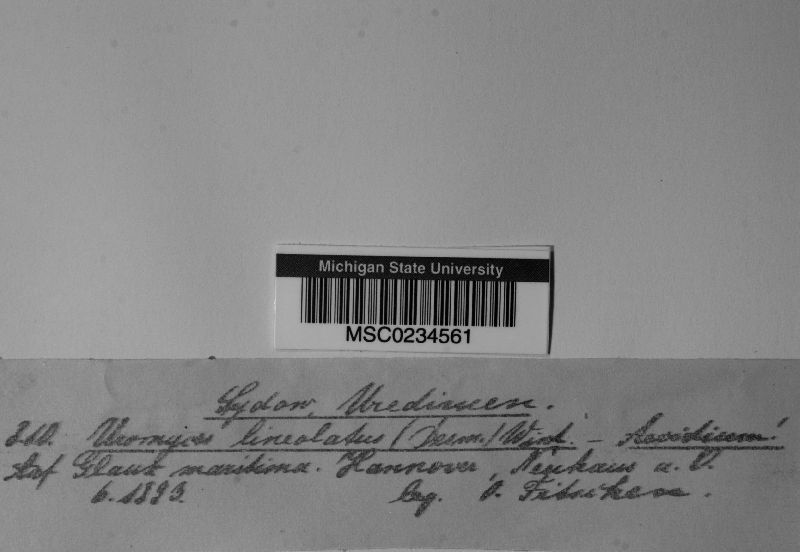 Michigan State University
MSC0234561
Sydow, Uredineen.
Uromyces lineolatus (Desm.) Wint. – Aecidium!
Auf Glaux maritima. Hannover, Neuhaus a. O.
6. 1893. leg. J. Fitschen.